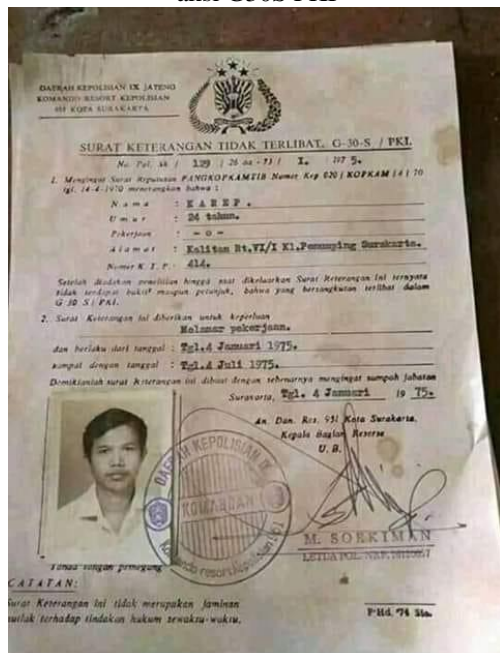 aksi G30S PKI
DAERAH KEPOLISIAN IX JATENG
KOMANDO RESORT KEPOLISIAN
951 KOTA SURAKARTA
SURAT KETERANGAN TIDAK TERLIBAT, G-30-S / PKI.
No. Pol. Sk / 129 / 26 / I. 197 5.
1. Mengingat Surat Keputusan PANGKOPKAMTIB Nomer Kep 020 / KOPKAM / 4 / 70
tgl. 14-4-1970 menerangkan bahwa :
N a m a : K A R E P .
U m u r : 24 tahun.
Pekerjaan : - o -
A l a m a t : Kalitan Rt.VI/I Kl.Penumping Surakarta.
Nomer K. T. P. : 414.
Setelah diadakan penelitian hingga saat dikeluarkan Surat Keterangan ini ternyata
tidak terdapat bukti² maupun petunjuk, bahwa yang bersangkutan terlibat dalam
G 30 S / PKI.
2. Surat Keterangan ini diberikan untuk keperluan
Melamar pekerjaan.
dan berlaku dari tanggal : Tgl.4 Januari 1975.
sampai dengan tanggal : Tgl.4 Juli 1975.
Demikianlah surat keterangan ini dibuat dengan sebenarnya mengingat sumpah jabatan
Surakarta, Tgl. 4 Januari 19 75.
An. Dan. Res. 951 Kota Surakarta.
Kepala Bagian Reserse
U. B.
DAERAH KEPOLISIAN IX
KOMANDAN
Komando resort Kepolisian
M. SOEKIMAN
LETDA POL. NRP.
Tanda tangan pemegang
CATATAN:
Surat Keterangan ini tidak merupakan jaminan
mutlak terhadap tindakan hukum sewaktu-waktu.
P'Hd. '74 Sla.